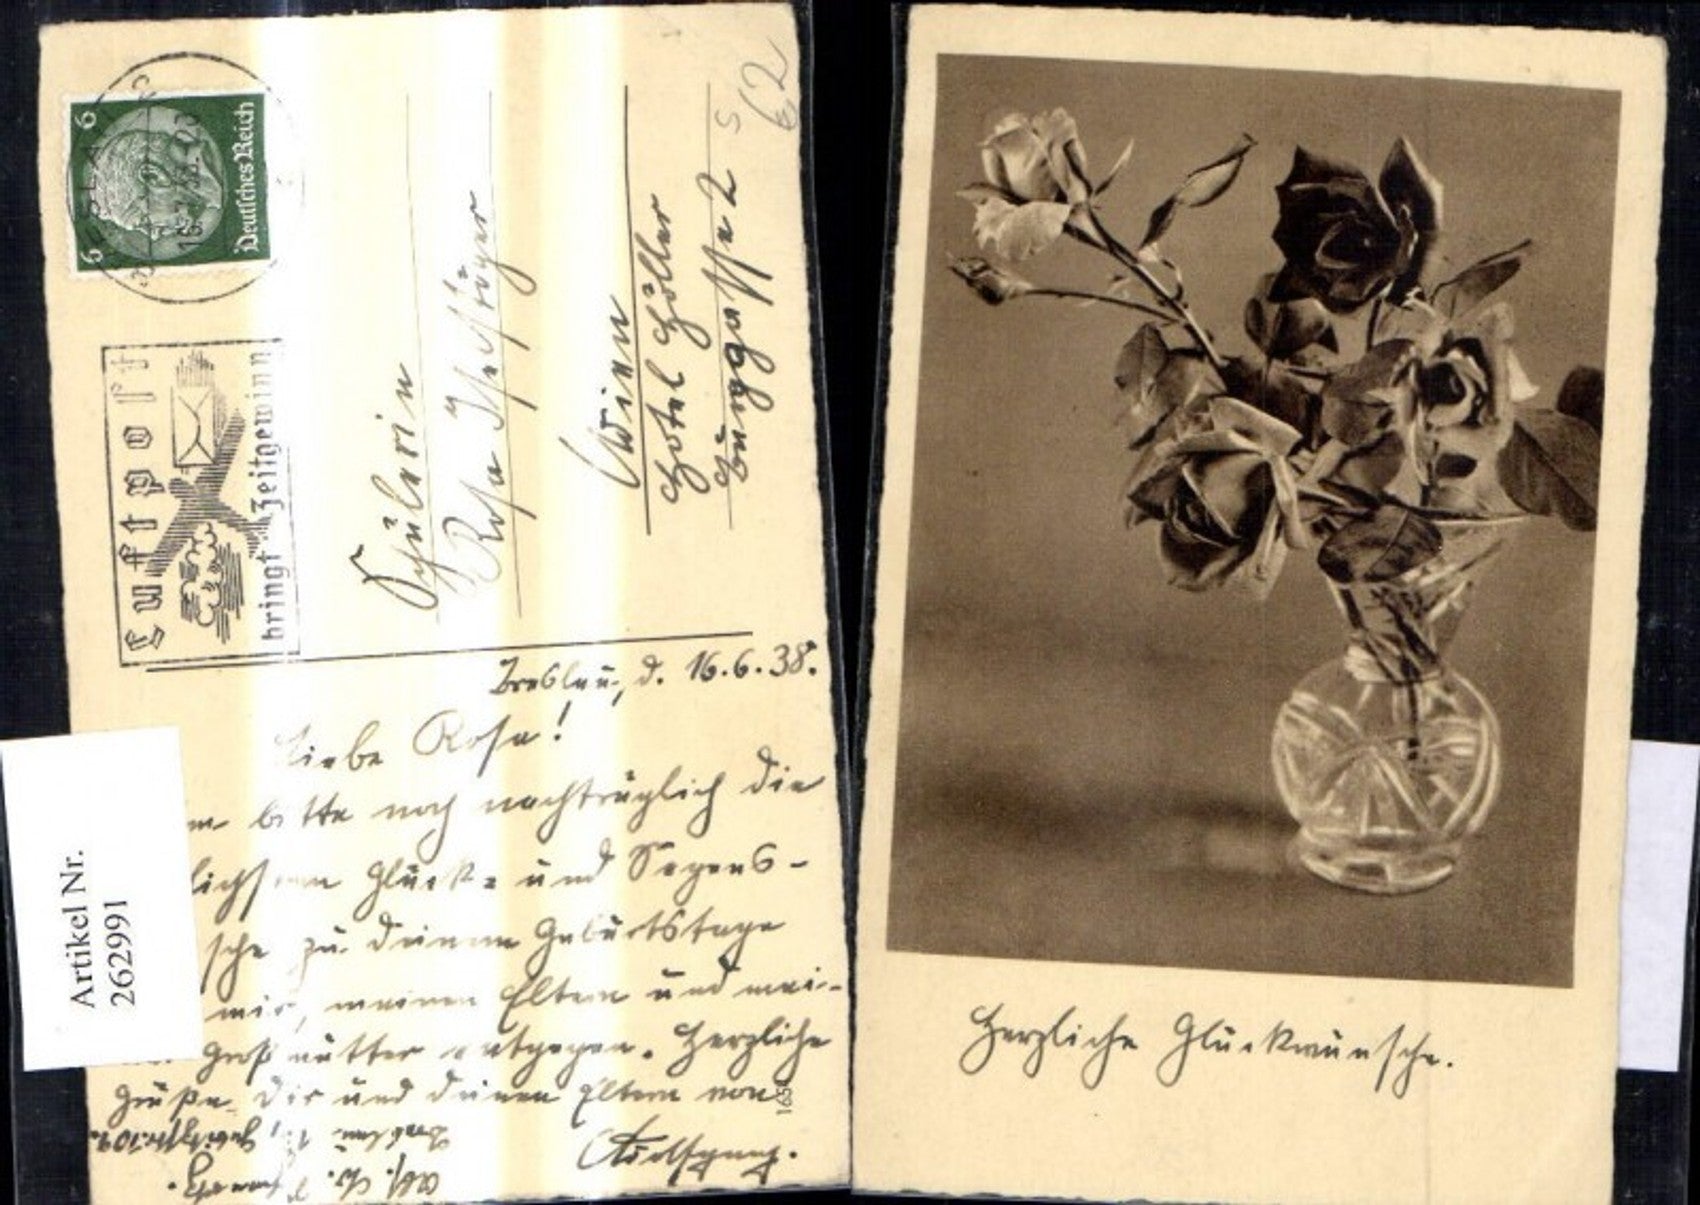 6
6
Deutsches Reich
Luftpost
bringt Zeitgewinn
62
Schülerin
Rosa
Wien
Hotel Höller
Burggasse 2
Breslau, d. 16.6.38.
Liebe Rosa!
bitte noch nachträglich die
lichsten Glück- und Segens-
sche zu deinem Geburtstage
mir, meinen Eltern und mei-
Großmutter entgegen. Herzliche
Grüße Dir und deinen Eltern von
Wolfgang.
Abs. W.
Breslau
Artikel Nr.
262991
Herzliche Glückwünsche.